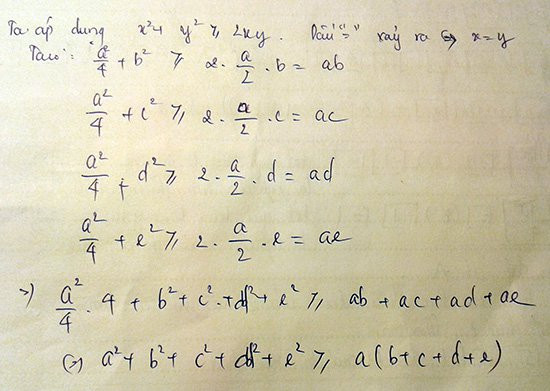 Ta áp dụng x² + y² ⩾ 2xy. Dấu "=" xảy ra ⇔ x = y
Ta có: a²/4 + b² ⩾ 2 · a/2 · b = ab
a²/4 + c² ⩾ 2 · a/2 · c = ac
a²/4 + d² ⩾ 2 · a/2 · d = ad
a²/4 + e² ⩾ 2 · a/2 · e = ae
=> a²/4 · 4 + b² + c² + d² + e² ⩾ ab + ac + ad + ae
⇔ a² + b² + c² + d² + e² ⩾ a(b + c + d + e)